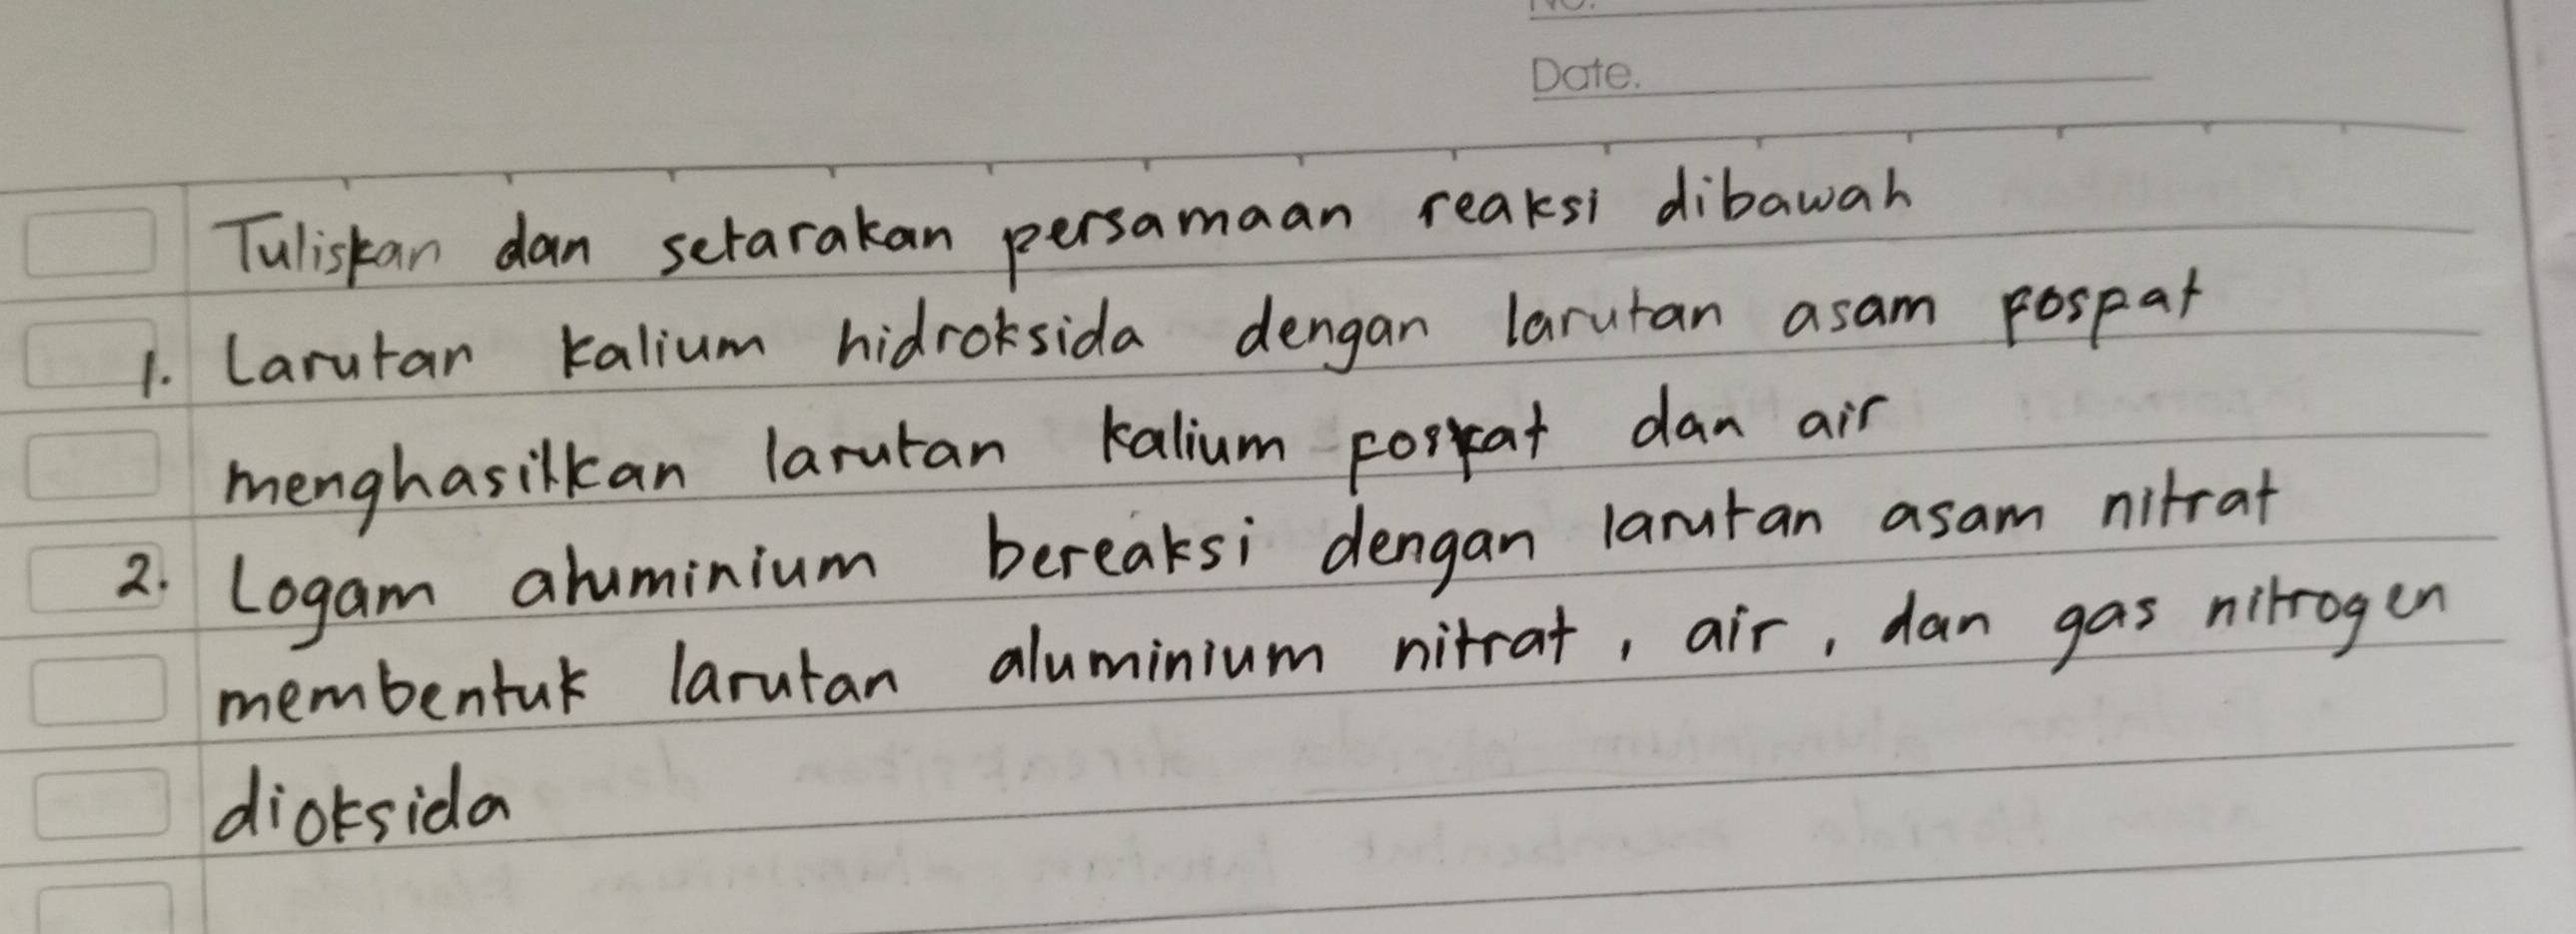 No.
Date.
Tuliskan dan setarakan persamaan reaksi dibawah
1. Larutan kalium hidroksida dengan larutan asam fospat
menghasilkan larutan kalium fosfat dan air
2. Logam aluminium bereaksi dengan larutan asam nitrat
membentuk larutan aluminium nitrat, air, dan gas nitrogen
dioksida